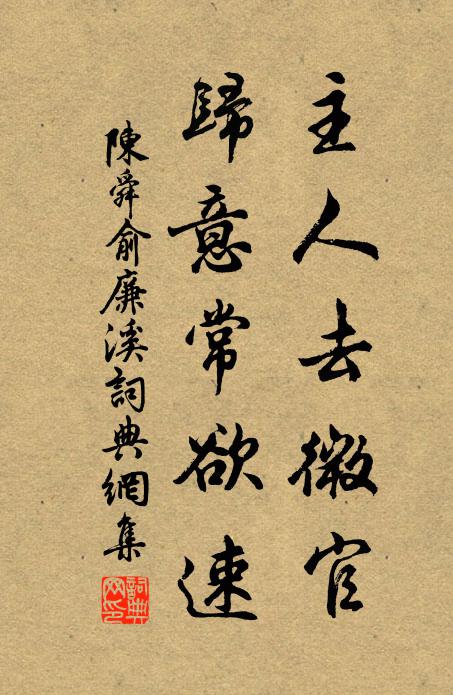 主人去微官
歸意常欲速
陳舜俞廉溪詞典網集
詞典網印